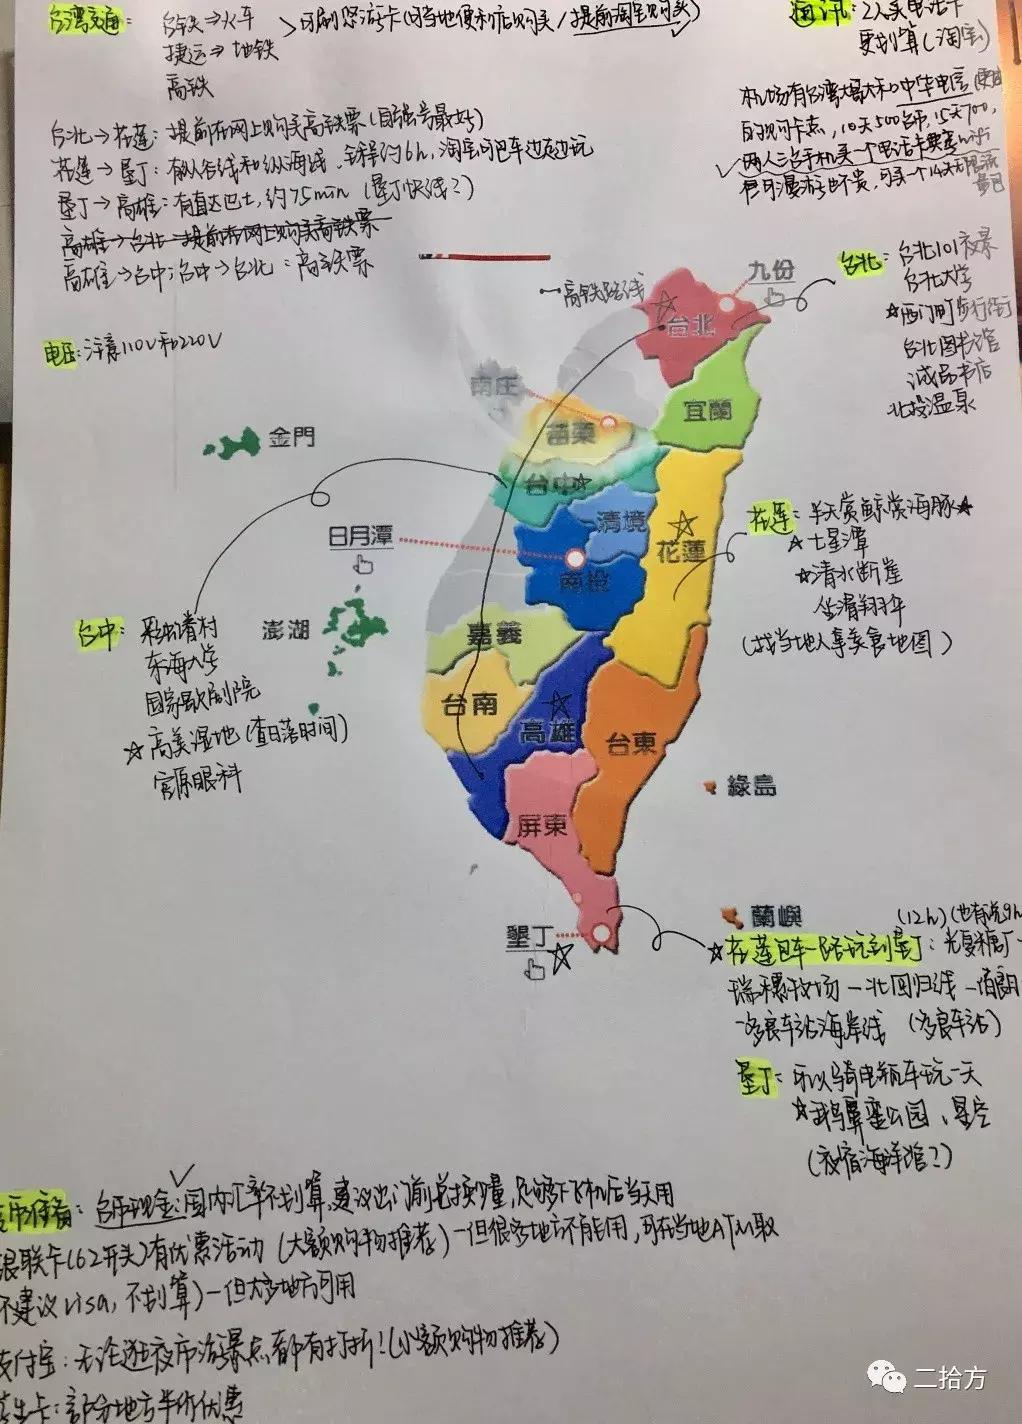 台湾交通: 台铁⇒火车
捷运⇒地铁
高铁
可刷悠游卡(可当地便利店购买/提前淘宝购买)
通讯: 2人买电话卡
更划算(淘宝)
机场有台湾大哥大和中华电信
的购卡点,10天500台币,15天700,
两人三台手机买一个电话卡
台北→花莲: 提前在网上购买高铁票(自强号最好)
花莲→垦丁: 有纵谷线和纵海线,全程约6h,淘宝可包车边走边玩
垦丁→高雄: 有直达巴士,约75min (垦丁快线?)
高雄→台北: 提前在网上购买高铁票
高雄→台中;台中→台北: 高铁票
电压: 注意110V和220V
高铁路线
九份
台北
台北: 台北101夜景
台北大学
☆西门町步行街
台北图书馆
诚品书店
北投温泉
南庄
苗栗
宜蘭
金門
台中
清境
日月潭
南投
花蓮
花莲: 半天赏鲸赏海豚★
★七星潭
☆清水断崖
坐滑翔伞
(找当地人拿美食地图)
台中: 彩虹眷村
东海大学
国家歌剧院
☆高美湿地(查日落时间)
宫原眼科
澎湖
嘉義
台南
高雄
台東
屏東
綠島
蘭嶼
墾丁
(12h)
☆花莲包车一路玩到垦丁: 光复糖厂-
瑞穗牧场-北回归线-伯朗
-多良车站海岸线 (多良车站)
垦丁: 可以骑电瓶车玩一天
☆鹅鸾鼻公园、星空
(夜宿海洋馆?)
台币现金:国内汇率不划算,建议出门前兑换少量,足够下飞机后当天用
银联卡(62开头)有优惠活动 (大额购物推荐)-但很多地方不能用,可在当地ATM取
不建议visa,不划算)-但大多地方可用
支付宝: 无论逛夜市流景点都有打折!(小额购物推荐)
学生卡: 部分地方半价优惠
二拾方